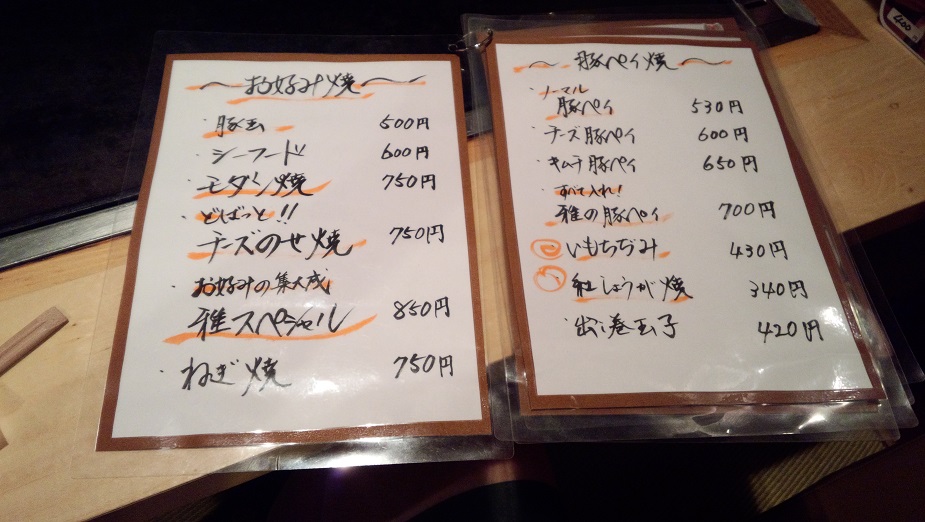 〜お好み焼〜
・豚玉 500円
・シーフード 600円
・モダン焼 750円
・どばっと!!
チーズのせ焼 750円
・お好みの集大成
雅スペシャル 850円
・ねぎ焼 750円
〜豚ペイ焼〜
・ノーマル
豚ペイ 530円
・チーズ豚ペイ 600円
・キムチ豚ペイ 650円
・すべて入れ!
雅の豚ペイ 700円
・いもちぢみ 430円
・紅しょうが焼 340円
・出し巻玉子 420円